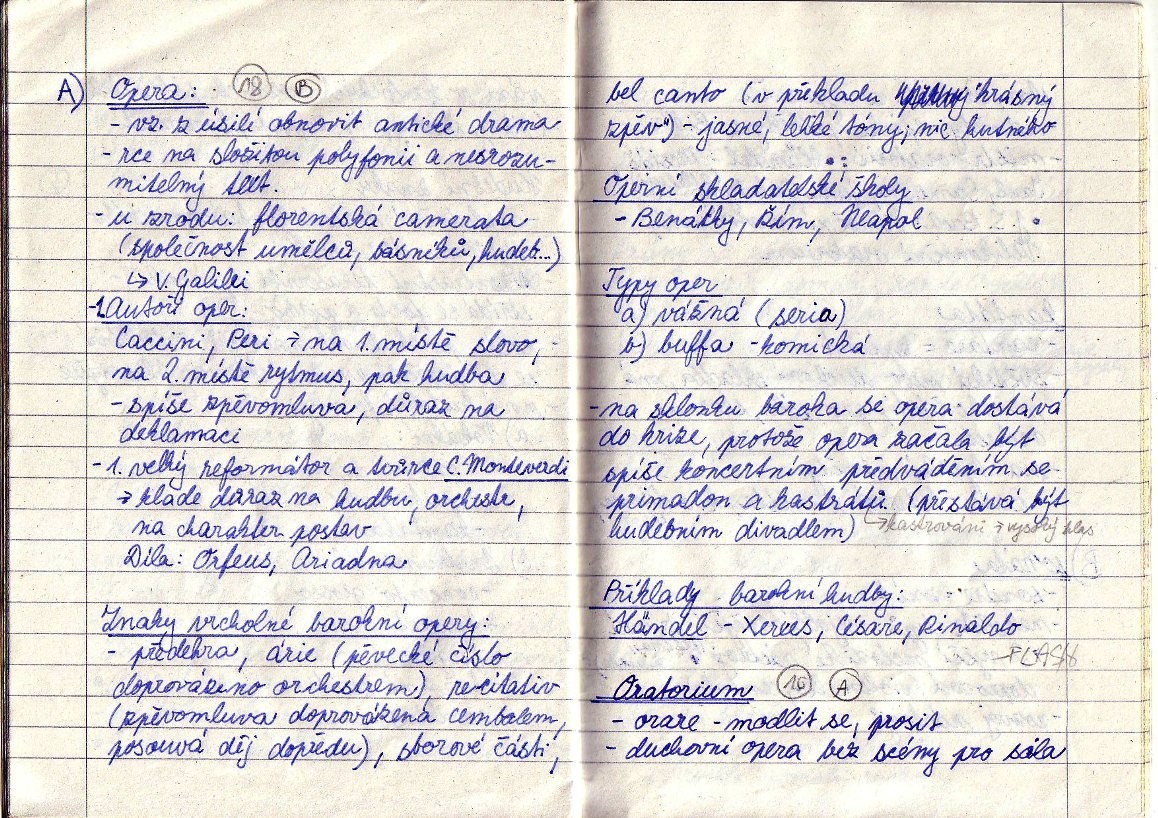 A) Opera: 18 B
- vz. z úsilí obnovit antické drama
- rce na složitou polyfonii a nesrozu-
mitelný text.
- u zrodu: florentská camerata
(společnost umělců, básníků, hudeb...)
↳ V. Galilei
- 1. Autoři oper:
Caccini, Peri → na 1. místě slovo,
na 2. místě rytmus, pak hudba
- spíše zpěvomluva, důraz na
deklamaci
- 1. velký reformátor a tvůrce C. Monteverdi
→ klade důraz na hudbu, orchestr,
na charakter postav
Díla: Orfeus, Ariadna
Znaky vrcholné barokní opery:
- předehra, árie (pěvecké číslo
doprovázeno orchestrem), recitativ
(zpěvomluva doprovázená cembalem,
posouvá děj dopředu), sborové části,
bel canto (v překladu "krásný
zpěv") - jasné, lehké tóny, nic hutného
Operní skladatelské školy
- Benátky, Řím, Neapol
Typy oper
a) vážná (seria)
b) buffa - komická
- na sklonku baroka se opera dostává
do krize, protože opera začala být
spíše koncertním předváděním se
primadon a kastrátů. (přestává být
hudebním divadlem) ↳ kastrování → vysoký hlas
Příklady barokní hudby:
Händel - Xerxes, César, Rinaldo
- FLASH
Oratorium 16 A
- orare - modlit se, prosit
- duchovní opera bez scény pro sóla